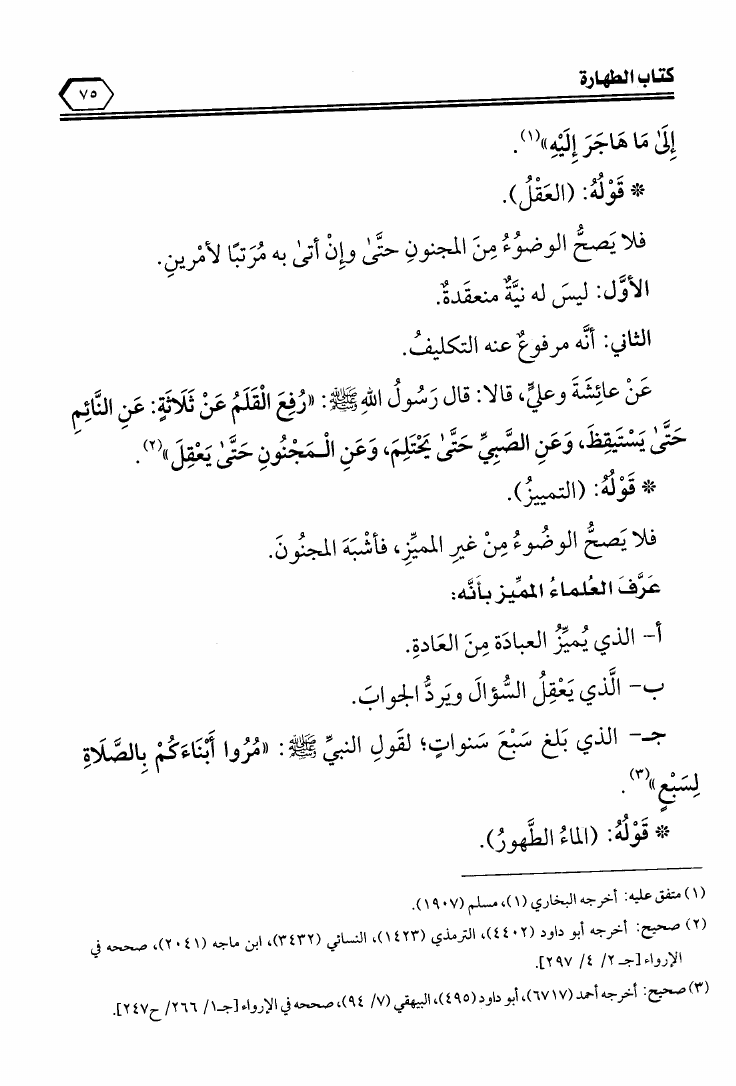 كتاب الطهارة
٧٥
إِلَىٰ مَا هَاجَرَ إِلَيْهِ»(١).
* قَوْلُهُ: (العَقْلُ).
فلا يَصحُّ الوضوُءُ مِنَ المجنونِ حتَّىٰ وإِنْ أتىٰ به مُرَتبًا لأمْرينِ.
الأوَّل: ليسَ له نيَّةٌ منعقَدةٌ.
الثاني: أنَّه مرفوعٌ عنه التكليفُ.
عَنْ عائِشَةَ وعليٍّ، قالا: قال رَسُولُ اللهِ ﷺ: «رُفِعَ الْقَلَمُ عَنْ ثَلَاثَةٍ: عَنِ النَّائِمِ
حَتَّىٰ يَسْتَيقِظَ، وَعَنِ الصَّبِيِّ حَتَّىٰ يَحْتَلِمَ، وَعَنِ الْـمَجْنُونِ حَتَّىٰ يَعْقِلَ»(٢).
* قَوْلُهُ: (التمييزُ).
فلا يَصحُّ الوضُوءُ مِنْ غيرِ المميِّزِ، فأشْبَهَ المجنُونَ.
عَرَّفَ العُلماءُ المميِّز بأنَّه:
أ- الذي يُميِّزُ العبادَة مِنَ العَادةِ.
ب- الَّذي يَعْقِلُ السُّؤالَ ويَردُّ الجوابَ.
جـ- الذي بَلغ سَبْعَ سَنواتٍ؛ لقَولِ النبيِّ ﷺ: «مُرُوا أَبْنَاءَكُمْ بِالصَّلَاةِ
لِسَبْعٍ»(٣).
* قَوْلُهُ: (الماءُ الطَّهورُ).
(١) متفق عليه: أخرجه البخاري (١)، مسلم (١٩٠٧).
(٢) صحيح: أخرجه أبو داود (٤٤٠٢)، الترمذي (١٤٢٣)، النسائي (٣٤٣٢)، ابن ماجه (٢٠٤١)، صححه في
الإرواء [جـ ٢/ ٤/ ٢٩٧].
(٣) صحيح: أخرجه أحمد (٦٧١٧)، أبو داود (٤٩٥)، البيهقي (٧/ ٩٤)، صححه في الإرواء [جـ١/ ٢٦٦/ ح٢٤٧].